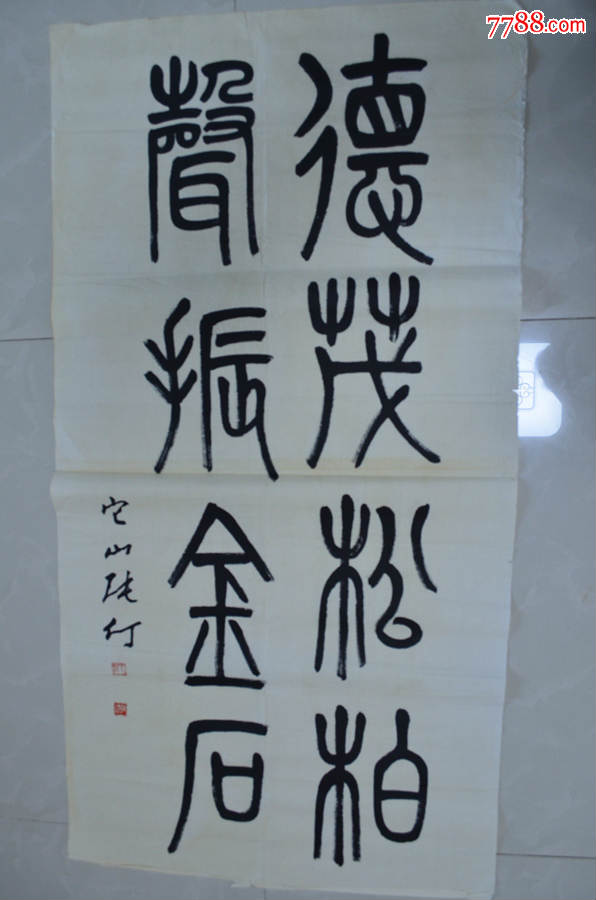 德茂松柏
聲振金石
它山張仃
7788.com